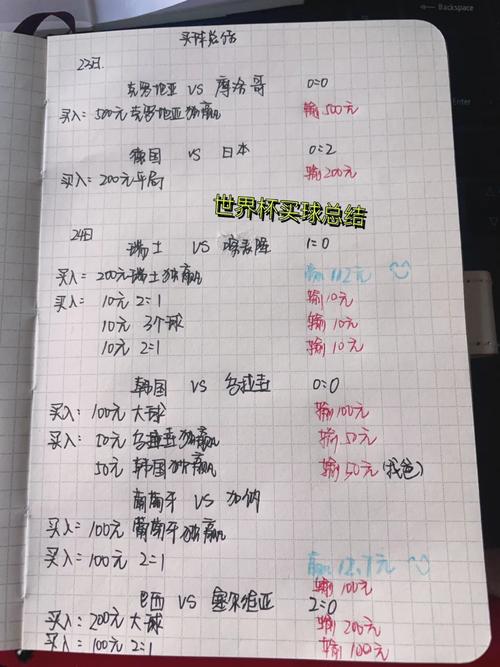 买球总结
23日.
克罗地亚 VS 摩洛哥 0=0
买入=500元克罗地亚独赢 输500元
德国 VS 日本 0=2
买入=200元平局 输200元
世界杯买球总结
24日
瑞士 VS 喀麦隆 1=0
买入=200元瑞士独赢 赢112元
买入= 10元 2=1 输10元
10元 3个球 输10元
10元 2=1 输10元
韩国 VS 乌拉圭 0=0
买入:100元 大球 输100元
买入= 50元 乌拉圭独赢 输50元
50元 韩国独赢 输50元
葡萄牙 VS 加纳
买入=100元 葡萄牙独赢
买入=100元 2=1
输100元
巴西 VS 塞尔维亚 2=0
买入:200元 大球 输200元
买入=100元 2=1 输100元
Backspace
Enter